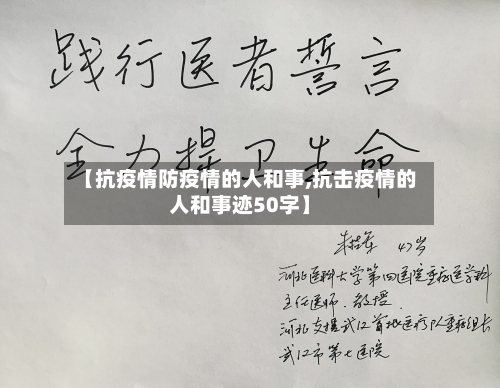 践行医者誓言
全力捍卫生命
【抗疫情防疫情的人和事,抗击疫情的
人和事迹50字】
47岁
河北医科大学第四医院重症医学科
主任医师.教授.
河北支援武汉首批医疗队重症组长
武汉市第七医院